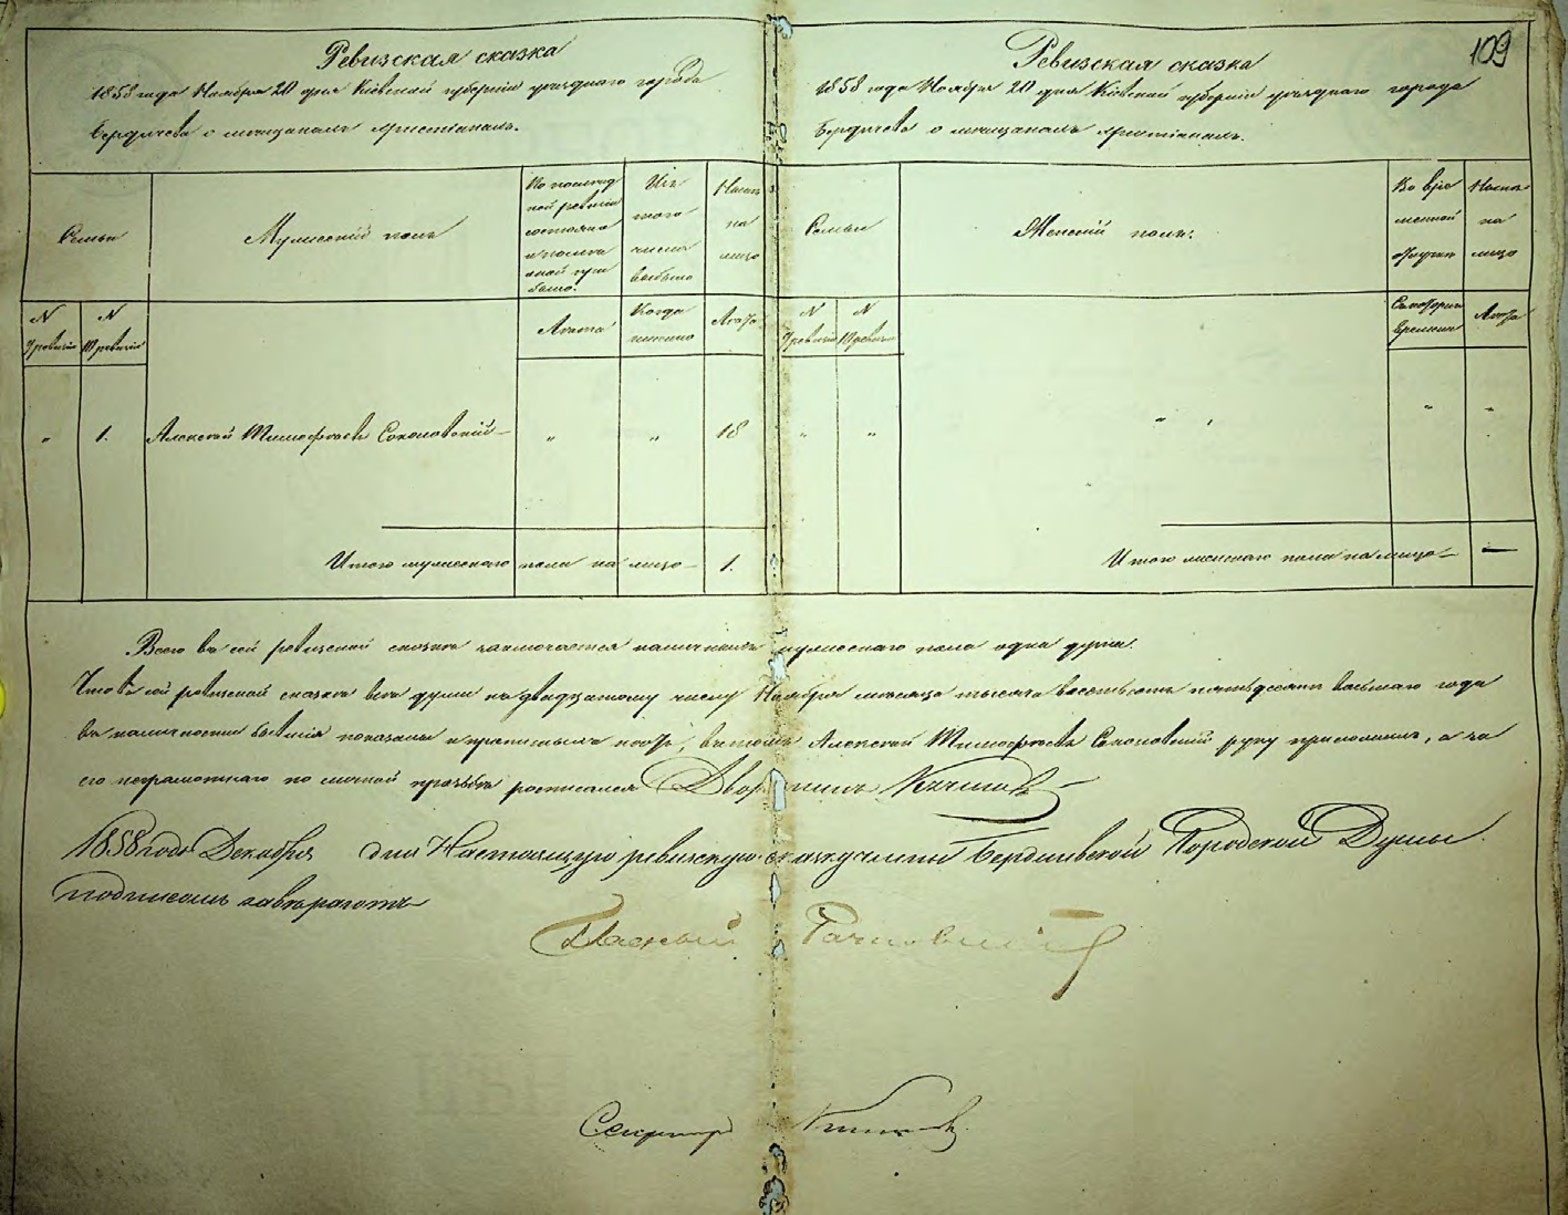 109
Ревизская сказка
1858 года Ноября 20 дня Кіевской губерніи уезднаго города
Бердичева о мещанахъ христіанахъ.
Семьи
Мужескій полъ
По послед
ней ревизіи
состояло
и после
оной при
было.
Изъ
того
числа
выбыло
На
лицо
N
ревизіи
N
ревизіи
Лета
Когда
именно
Лета
„
1.
Алексей Тимофеевъ Соколовскій
„
„
18
Итого мужескаго пола на лицо
1.
Ревизская сказка
1858 года Ноября 20 дня Кіевской губерніи уезднаго города
Бердичева о мещанахъ христіанахъ.
Семьи
Женскій полъ.
Во вре
менной
отлучке
на
лицо
N
ревизіи
N
ревизіи
Съ которого
времени
Лета
„
„
„
„
„
Итого женскаго пола на лицо —
Всего въ сей ревизской сказке заключается наличныхъ мужескаго пола одна душа.
Что въ сей ревизской сказке все души къ двадцатому числу Ноября месяца тысяча восемьсотъ пятьдесятъ восьмаго года
въ наличности показаны, въ томъ Алексей Тимофеевъ Соколовскій руку приложилъ, а за
его неграмотнаго по личной прозьбе росписался Дворянинъ
1858 года Декабря дня Настоящую ревизскую сказку члены Бердичевской Городской Думы
подписомъ
Гласный
Секретарь